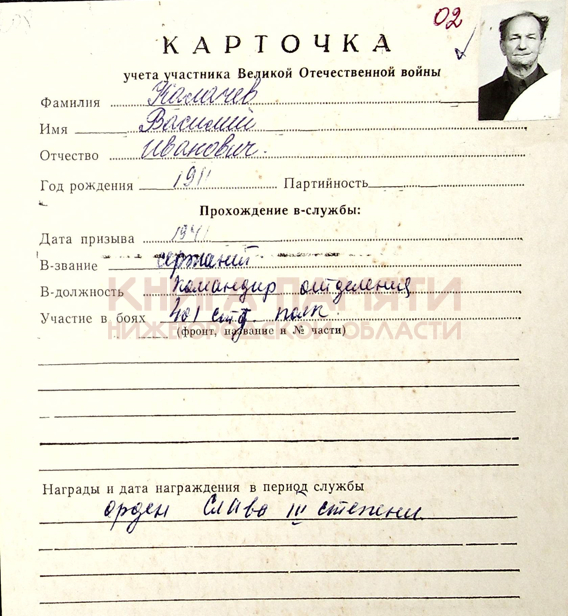 02
КАРТОЧКА
учета участника Великой Отечественной войны
Фамилия Калачев
Имя Василий
Отчество Иванович.
Год рождения 1911 Партийность
Прохождение в-службы:
Дата призыва 1941
В-звание сержант
В-должность командир отделения
КНИГА ПАМЯТИ
Участие в боях 401 стр. полк
НИЖЕГОРОДСКОЙ ОБЛАСТИ
(фронт, название и № части)
Награды и дата награждения в период службы
орден Слава III степени